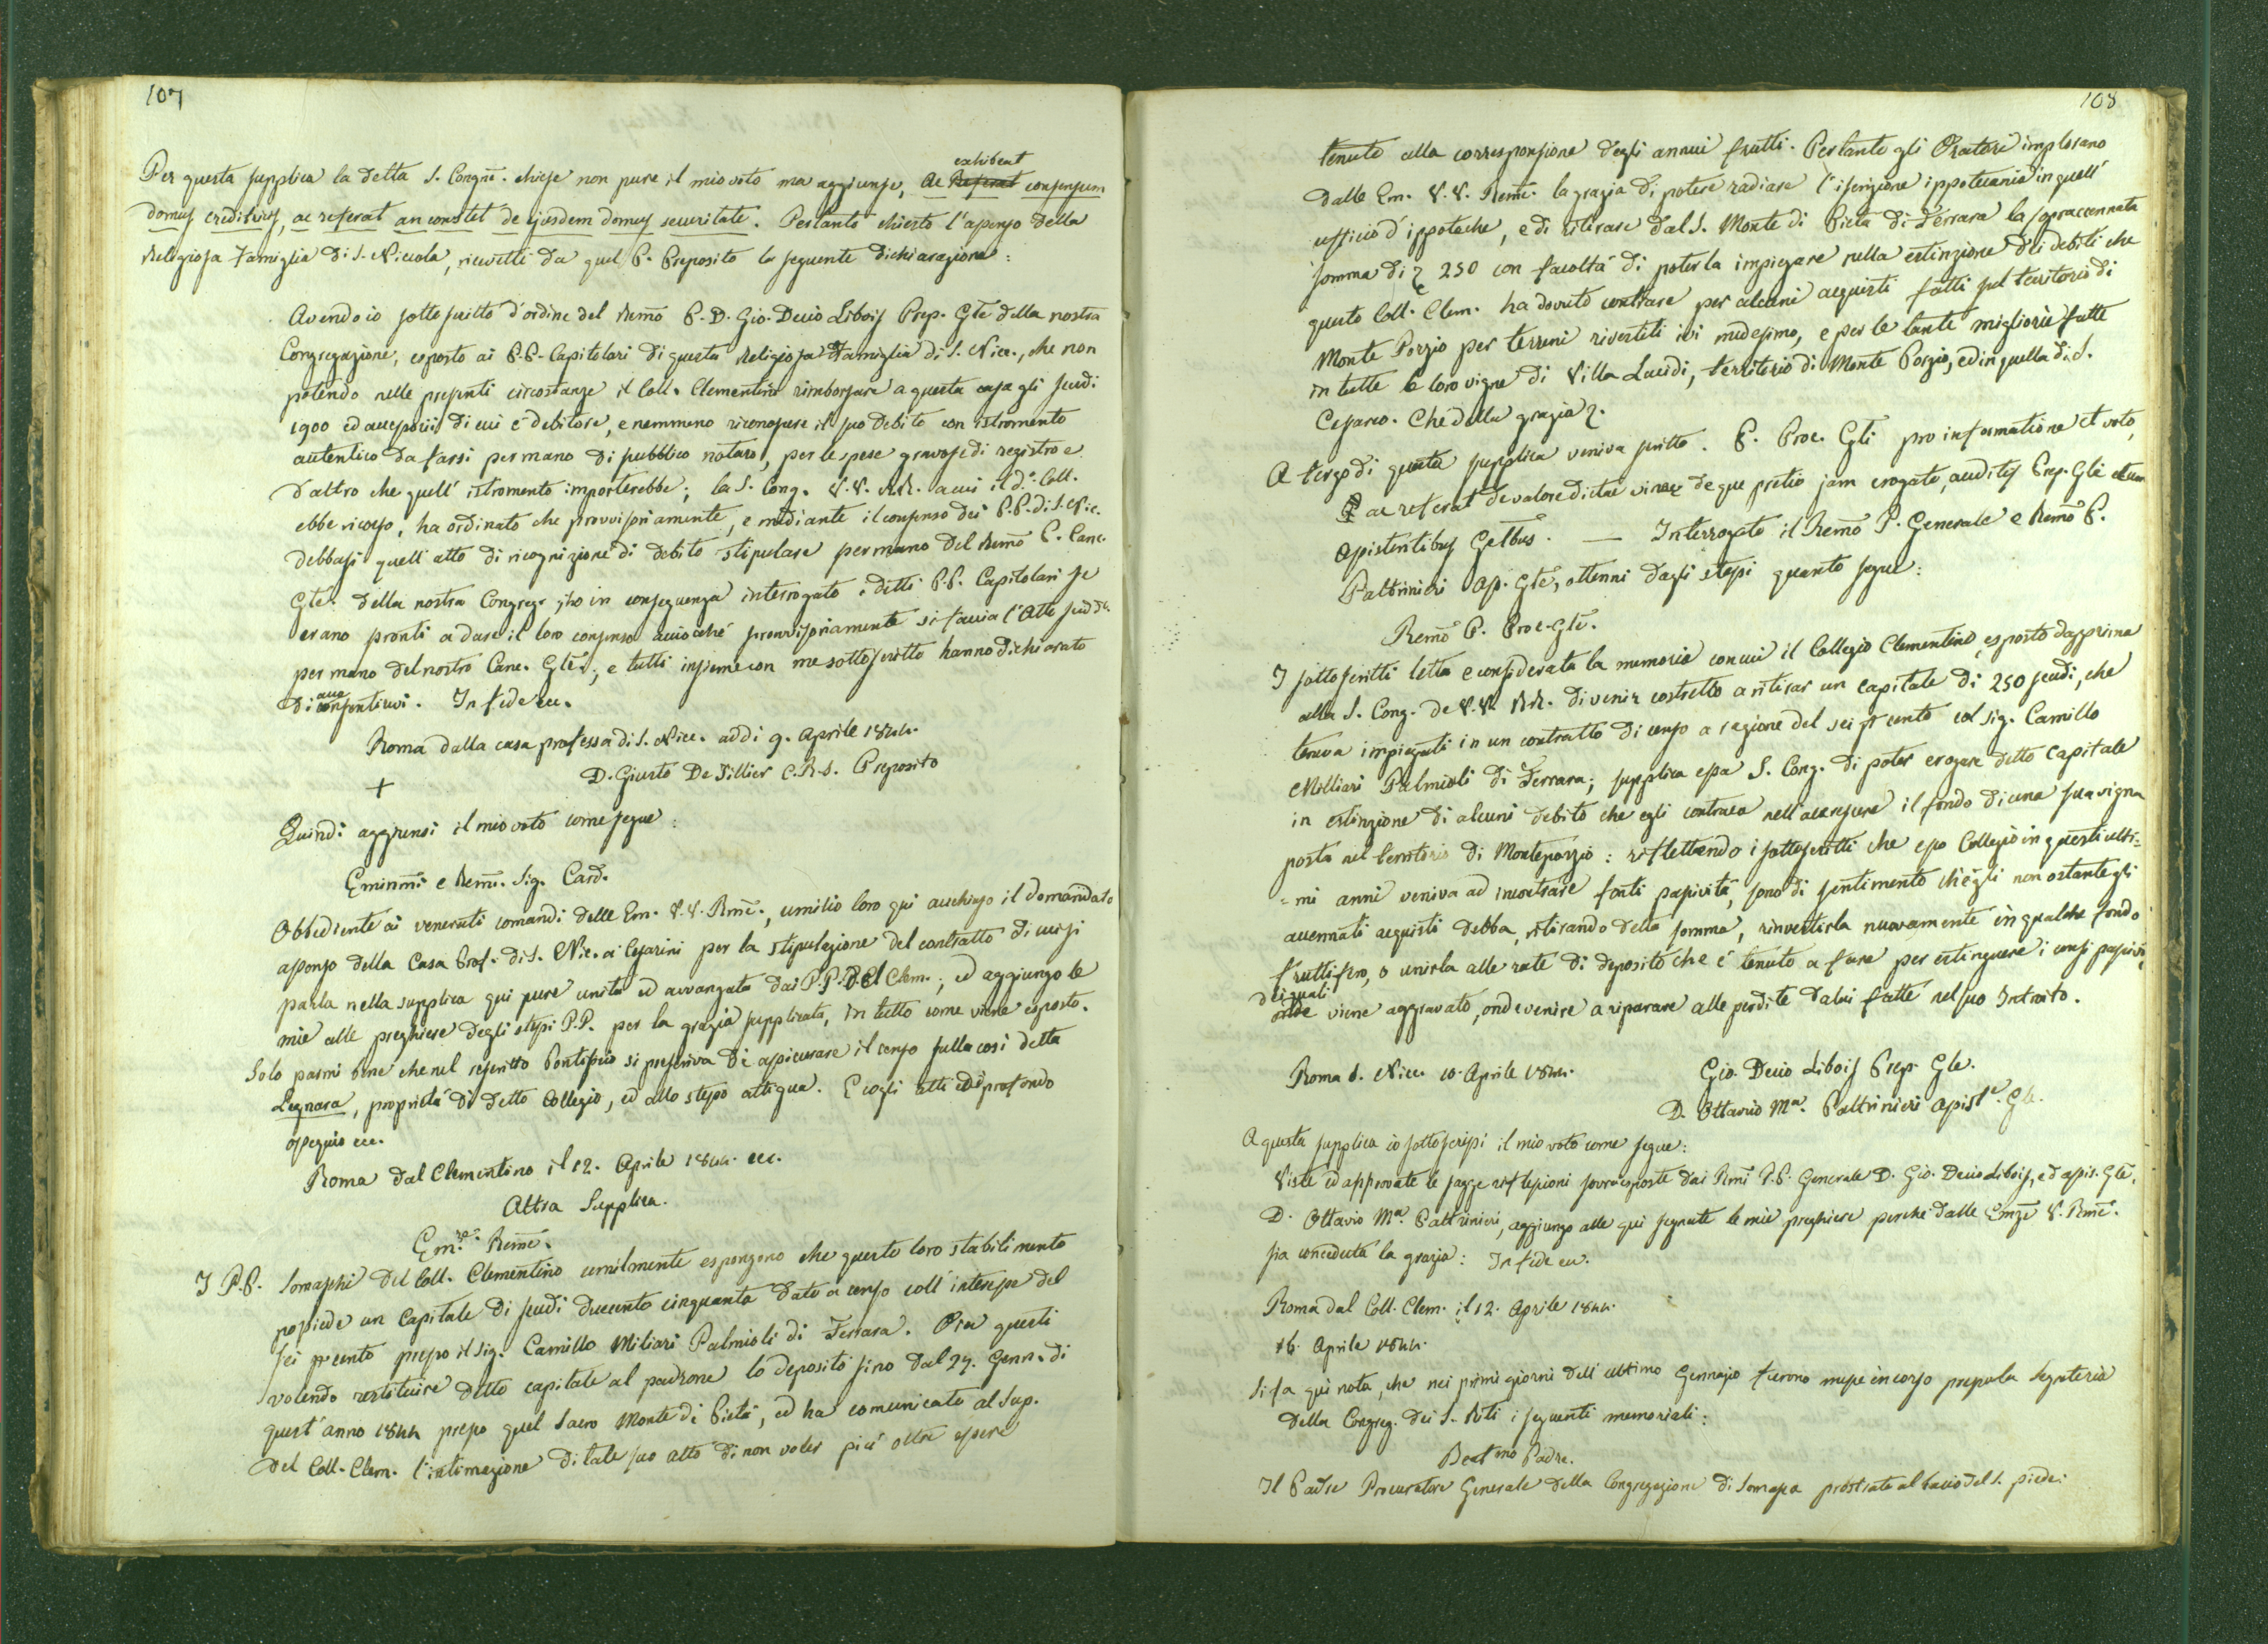 107
Per questa supplica la detta S. Congne. chiese non pure il mio voto ma aggiunse, ac Referat exhibeat consensum
domus creditricis, ac referat an constet de ejusdem domus securitate. Pertanto chiesto l'assenso della
Religiosa Famiglia di S. Niccola, ricevetti da quel P. Preposito la seguente dichiarazione:
Avendo io sottoscritto d'ordine del Remo P. D. Gio. Decio Libois Prep. Gle della nostra
Congregazione, esposto ai P.P. Capitolari di questa Religiosa Famiglia di S. Nicc., che non
potendo nelle presenti circostanze il Coll. Clementino rimborsare a questa casa gli scudi
1900 ed accessorii di cui è debitore, e nemmeno riconoscere il suo debito con istromento
autentico da farsi per mano di pubblico notaro, per le spese gravose di registro e
d'altro che quell' istromento importerebbe; la S. Cong. V.V. RR. a cui il do. Coll.
ebbe ricorso, ha ordinato che provvisoriamente, e mediante il consenso dei P.P. di S. Nic.
debbasi quell' atto di ricognizione di debito stipulare per mano del Remo P. Canc.
Gle. della nostra Congreg. ho in conseguenza interrogato i detti P.P. Capitolari se
erano pronti a dare il loro consenso acciocché provvisoriamente si faccia l'Atto sudd.
per mano del nostro Canc. Gle., e tutti insieme con me sottoscritto hanno dichiarato
di acconsentirvi. In fede ecc.
Roma dalla casa professa di S. Nicc. addi 9. Aprile 1844.
+ D. Giusto De Tillier C.R.S. Preposito
Quindi aggiunsi il mio voto come segue:
Eminmi e Remi. Sig. Card.
Obbediente ai venerati comandi delle Em. V.V. Rme., umilio loro qui acchiuso il domandato
assenso della Casa Prof. di S. Nic. ai Cesarini per la stipulazione del contratto di cui si
parla nella supplica qui pure unita ed avvanzata dai P.P. del Clem.; ed aggiungo le
mie alle preghiere degli stessi P.P. per la grazia supplicata, in tutto come viene esposto.
Solo parmi bene che nel rescritto Pontificio si prescriva di assicurare il censo sulla così detta
Legnara, proprietà di detto Collegio, ed allo stesso attigua. E cogli atti di profondo
ossequio ecc.
Roma dal Clementino il 12. Aprile 1844. ecc.
Altra Supplica.
Em.re Reme.
I P.P. Somaschi del Coll. Clementino umilmente espongono che questo loro stabilimento
possiede un Capitale di scudi duecento cinquanta dato a censo coll' interesse del
sei pr cento presso il sig. Camillo Miliari Palmioli di Ferrara. Ora questi
volendo restituire detto capitale al padrone lo depositò sino dal 27. Genn. di
quest' anno 1844 presso quel Sacro Monte di Pietà, ed ha comunicato al Sup.
del Coll. Clem. l'intimazione di tale suo atto di non voler più oltre essere
108
tenuto alla corresponsione degli annui frutti. Pertanto gli Oratori implorano
dalle Em. V.V. Reme. la grazia di potere radiare l'iscrizione ippotecaria in quell'
ufficio d'ippoteche, e di ritirare dal S. Monte di Pietà di Ferrara la sopraccennata
somma di 250 con facoltà di poterla impiegare nella estinzione dei debiti che
questo Coll. Clem. ha dovuto contrare per alcuni acquisti fatti sul territorio di
Monte Porzio per terreni rivestiti ivi medesimo, e per le tante migliorie fatte
in tutte le loro vigne di Villa Lucidi, territorio di Monte Porzio, ed in quella di S.
Cesareo. Che della grazia
A tergo di questa supplica veniva scritto. P. Proc. Gli pro informatione et voto,
ac referat de valore dictae vineae de que pretio jam erogato, auditis Prep. Gle et
Assistentibus Gelbus. — Interrogato il Remo P. Generale e Remo P.
Paltrinieri Ass. Gle, ottenni dagli stessi quanto segue:
Remo P. Proc. Gle.
I sottoscritti letta e considerata la memoria con cui il Collegio Clementino, esposto dapprima
alla S. Cong. de V.V. RR. di venir costretto a ritirar un capitale di 250 scudi, che
teneva impiegati in un contratto di censo a ragione del sei pr cento col sig. Camillo
Milliari Palmioli di Ferrara; supplica essa S. Cong. di poter erogare detto Capitale
in estinzione di alcuni debito che egli contraea nell'accrescere il fondo di una sua vigna
posta nel territorio di Monteporzio: riflettendo i sottoscritti che esso Collegio in questi ulti=
=mi anni veniva ad incontrare forti passività, sono di sentimento ch'egli non ostante gli
accennati acquisti debba, ritirando detta somma, rinvestirla nuovamente in qualche fondo
fruttifero, o unirla alle rate di deposito che è tenuto a fare per estinguere i censi passivi,
dei quali viene aggravato, onde venire a riparare alle perdite da lui fatte nel suo Introito.
Roma S. Nicc. 10. Aprile 1844. Gio. Decio Libois Prep. Gle.
D. Ottavio Ma. Paltrinieri Assiste. Gle.
A questa supplica io sottoscrissi il mio voto come segue:
Viste ed approvate le sagge riflessioni sovraesposte dai Rmi P.P. Generale D. Gio. Decio Libois, ed assis. Gle.
D. Ottavio Ma. Paltrinieri, aggiungo alle qui segnate le mie preghiere perchè dalle Emze V. Rme.
sia conceduta la grazia: In fede ecc.
Roma dal Coll. Clem. il 12. Aprile 1844.
16. Aprile 1844.
Si fa qui nota, che nei primi giorni dell' ultimo Gennajo furono messe in corso presso la Segreteria
della Congreg. dei S. Riti i seguenti memoriali:
Beatmo Padre.
Il Padre Procuratore Generale della Congregazione di Somasca prostrato al bacio del S. piede: